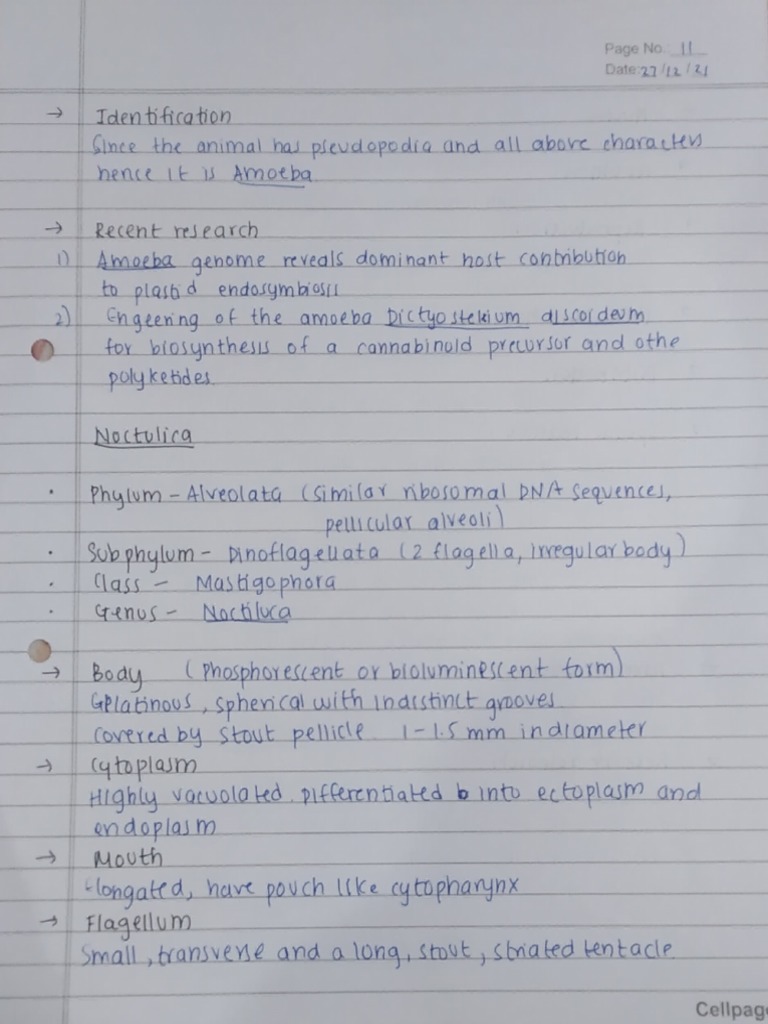 Page No. 11
Date: 27/12/21
→ Identification
Since the animal has pseudopodia and all above characters
hence it is Amoeba
→ Recent research
1) Amoeba genome reveals dominant host contribution
to plastid endosymbiosis
2) Engeering of the amoeba Dictyostelium discoideum
for biosynthesis of a cannabinoid precursor and othe
polyketides
Noctulica
• Phylum - Alveolata (similar ribosomal DNA sequences,
pellicular alveoli)
• Subphylum - Dinoflagellata (2 flagella, irregular body)
• Class - Mastigophora
• Genus - Noctiluca
→ Body (Phosphorescent or bioluminescent form)
Gelatinous, spherical with indistinct grooves
covered by stout pellicle 1-1.5 mm in diameter
→ Cytoplasm
Highly vacuolated. Differentiated into ectoplasm and
endoplasm
→ Mouth
Elongated, have pouch like cytopharynx
→ Flagellum
Small, transverse and a long, stout, striated tentacle
Cellpage